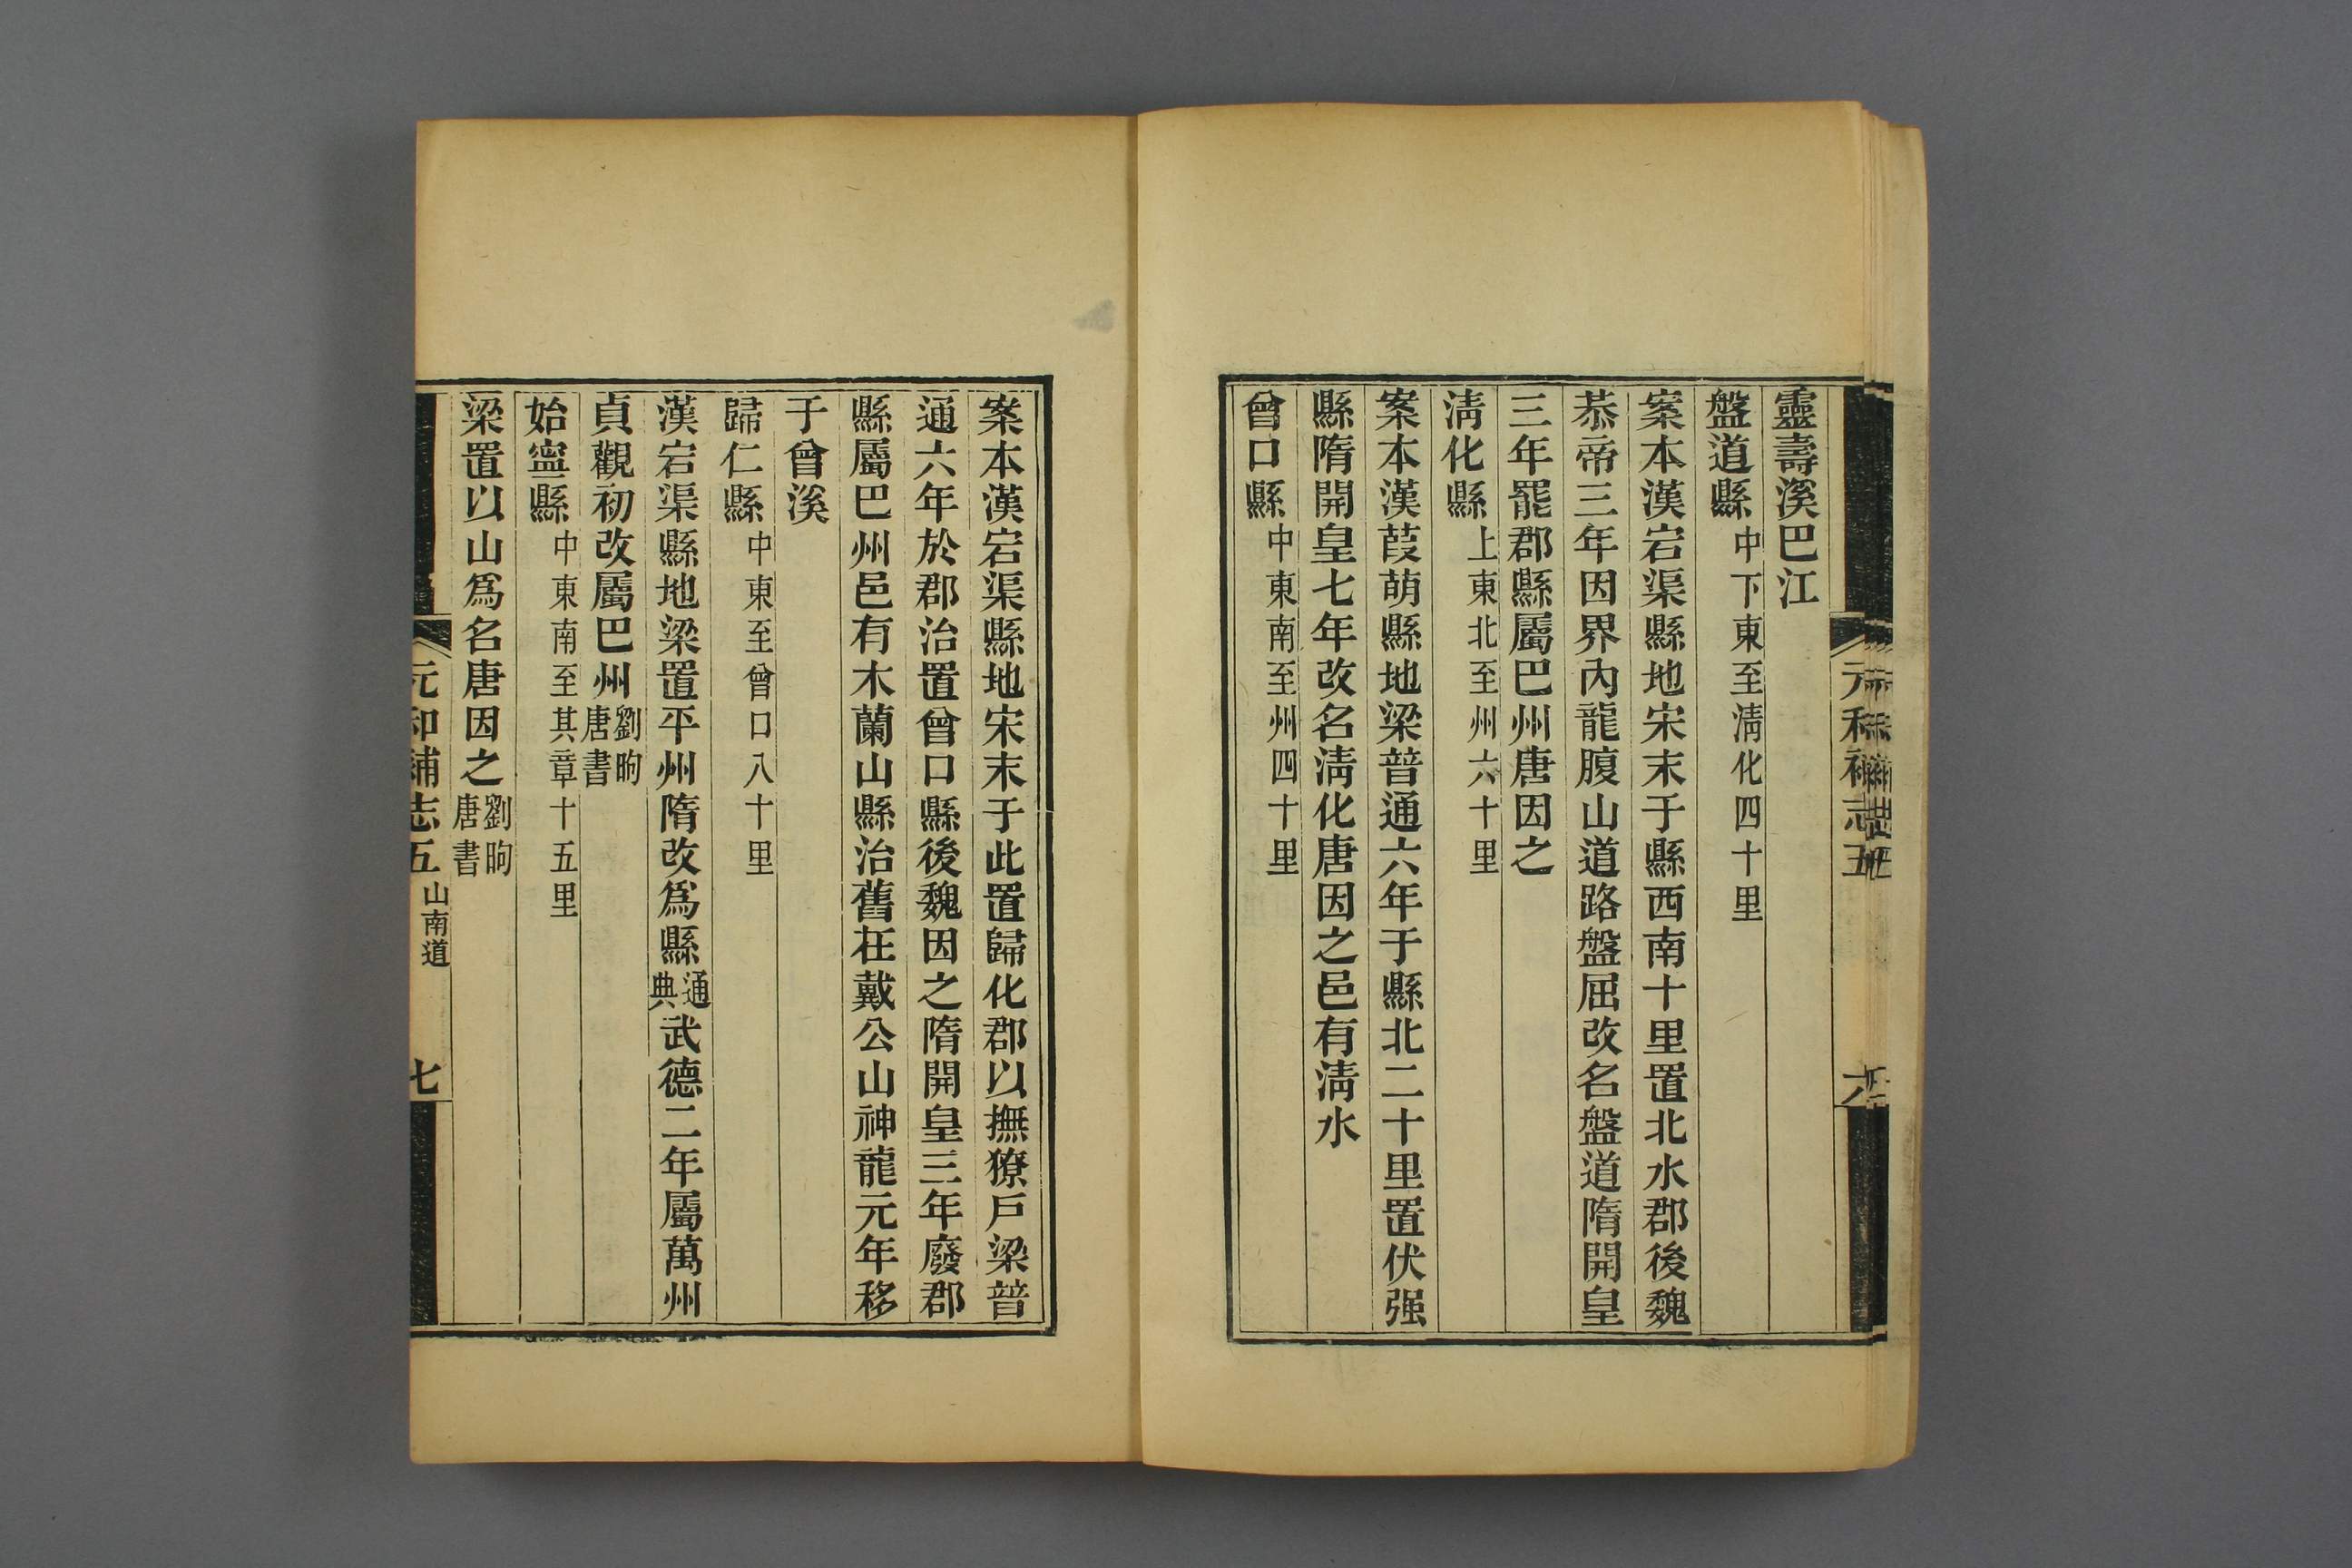 靈壽溪巴江
盤道縣中下東至淸化四十里
案本漢宕渠縣地宋末于縣西南十里置北水郡後魏
恭帝三年因界內龍腹山道路盤屈改名盤道隋開皇
三年罷郡縣屬巴州唐因之
淸化縣上東北至州六十里
案本漢葭萌縣地梁普通六年于縣北二十里置伏强
縣隋開皇七年改名淸化唐因之邑有淸水
曾口縣中東南至州四十里
案本漢宕渠縣地宋末于此置歸化郡以撫獠戶梁普
通六年於郡治置曾口縣後魏因之隋開皇三年廢郡
縣屬巴州邑有木蘭山縣治舊在戴公山神龍元年移
于曾溪
歸仁縣中東至曾口八十里
漢宕渠縣地梁置平州隋改爲縣通典武德二年屬萬州
貞觀初改屬巴州劉昫唐書
始寧縣中東南至其章十五里
梁置以山爲名唐因之劉昫唐書
元和補志五山南道 七